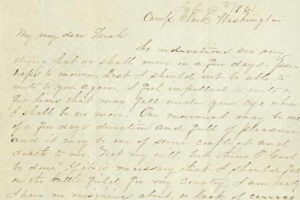 July 14th 1861
Camp Clark, Washington
My, my dear Sarah
The indications are very
strong that we shall move in a few days. Per-
haps to morrow. Lest I should not be able to
write to you again, I feel impelled to write a
few lines that may fall under your eye when
I shall be no more. Our movement may be one
of a few days duration and full of pleasure
and it may be one of severe conflict and
death to me. Not my will, but thine O God
be done. If it is necessary that I should fall
on the battle field for my Country, I am ready
I have no misgivings about or lack of